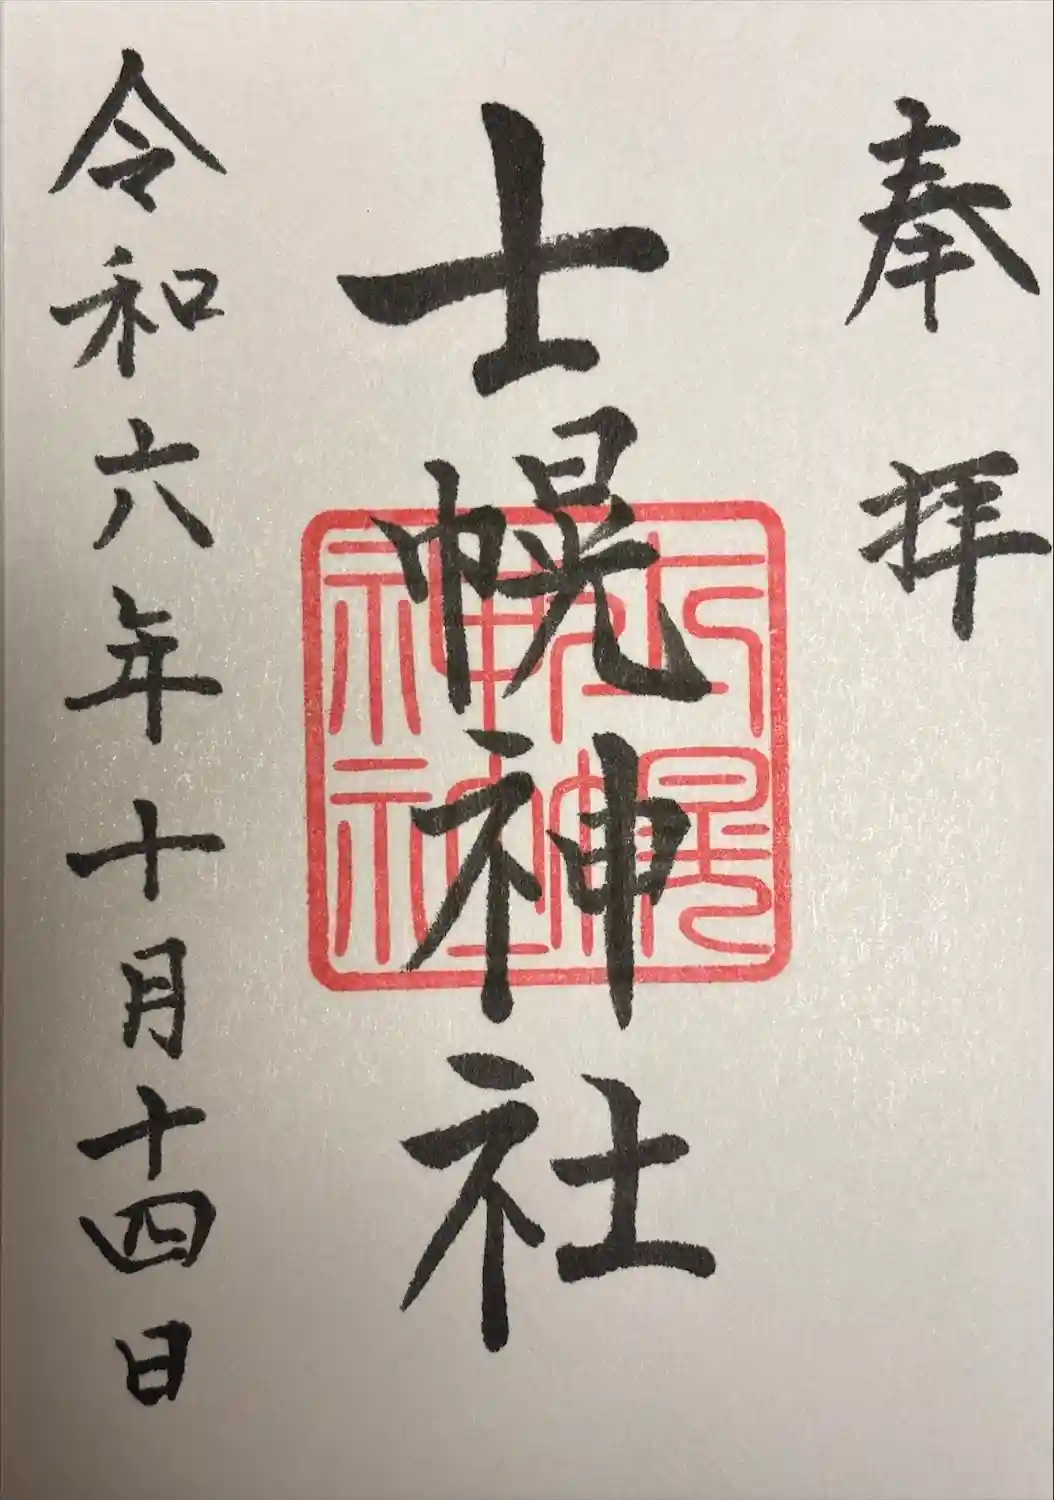 奉拝
士幌神社
令和六年十月十四日
士幌
神社